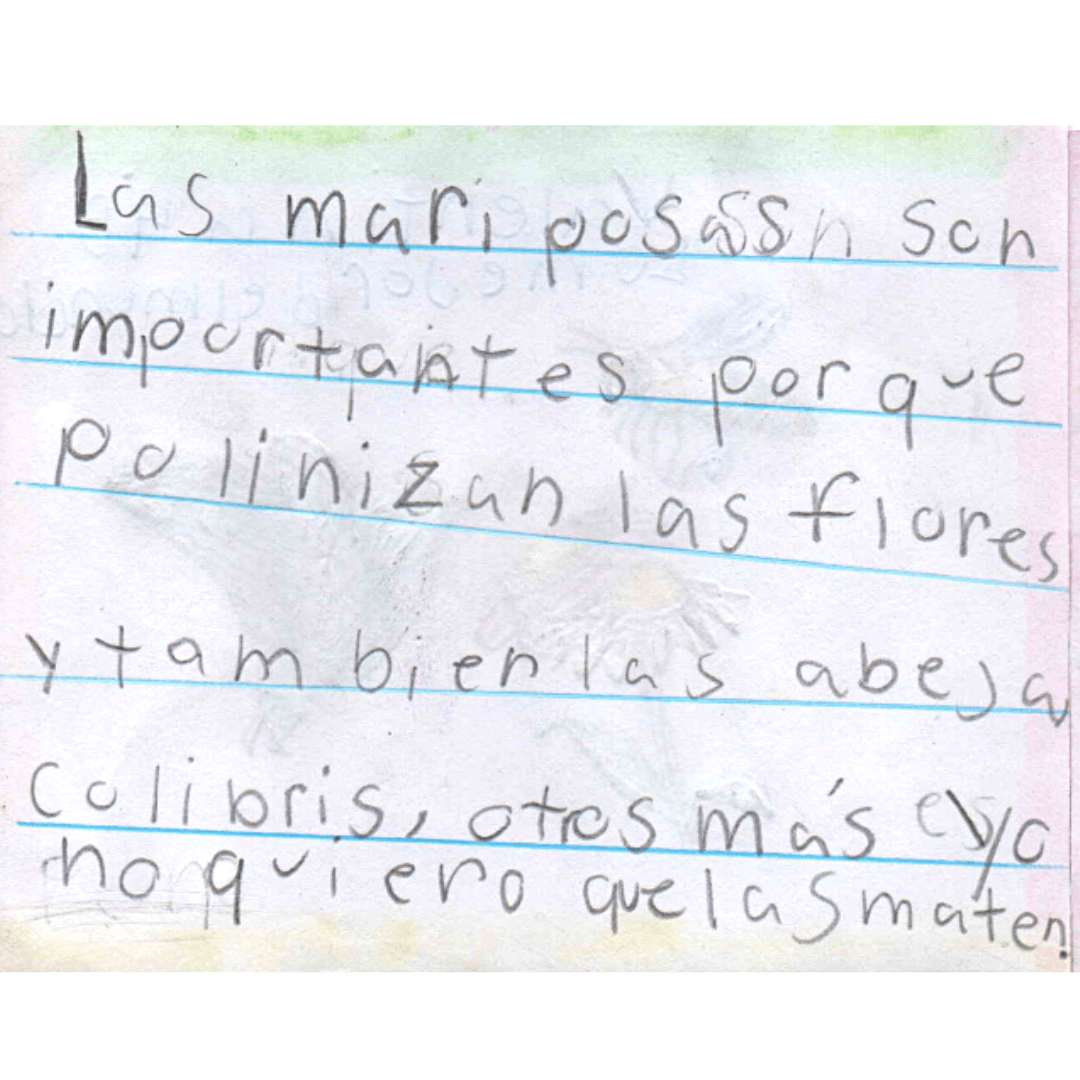 Las mariposas son
importantes porque
polinizan las flores
y tambien las abeja
colibris, otros más yo
no quiero que las maten.